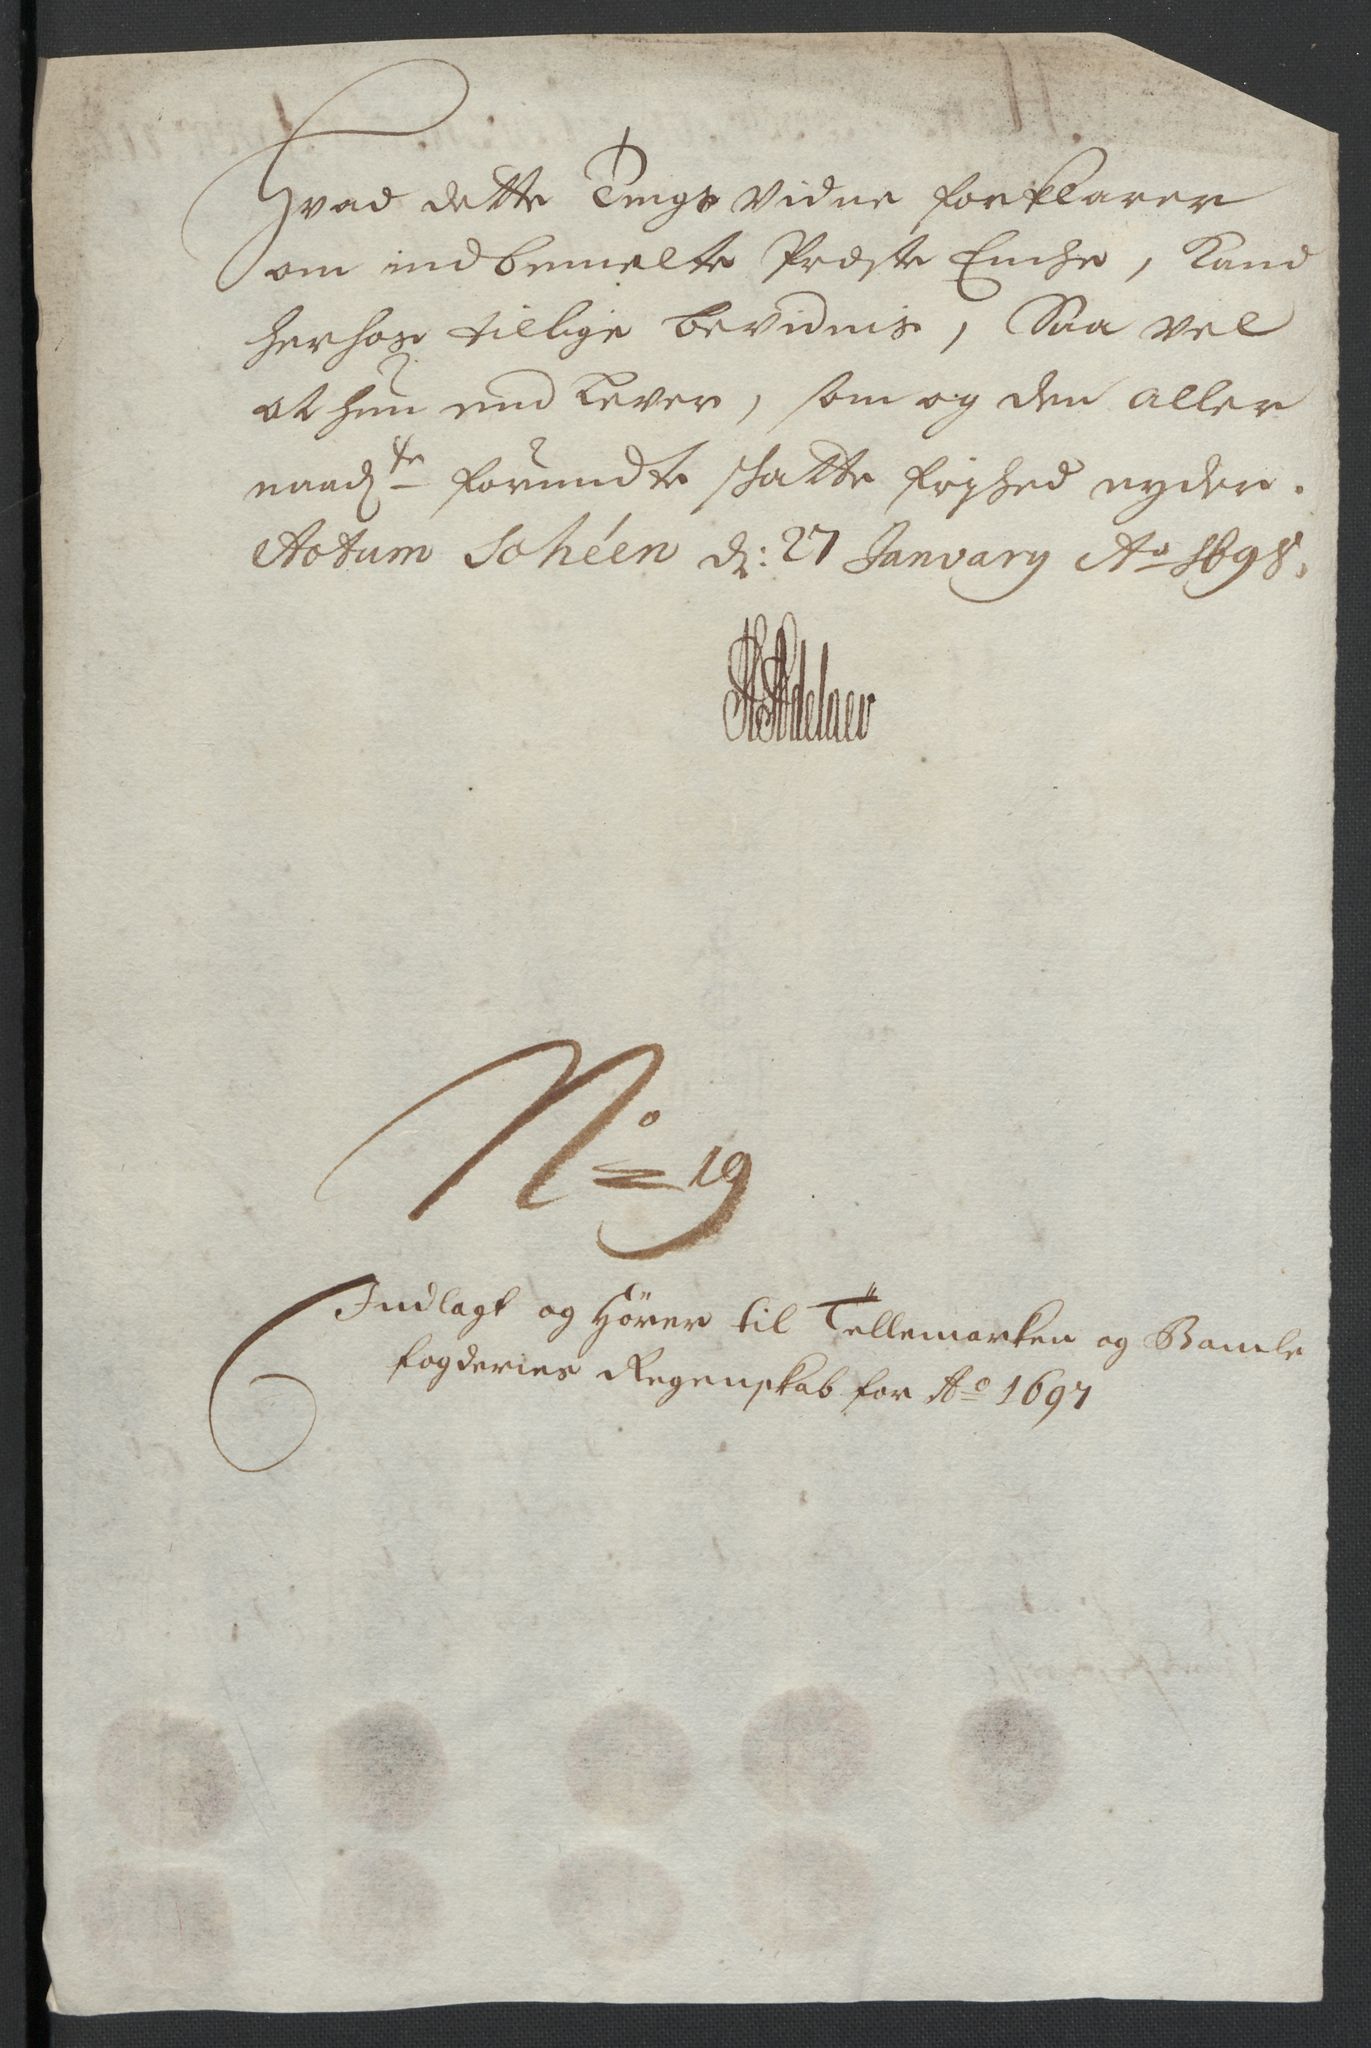 Hvad dette Tings Vidne forklarer
om indbemelte Præste Encke, Kand
herhos tillige bevidnis, Saa vel
at hun end Lever, som og den aller
naad^te forundte skatte frihed nyder.
Actum Schéen d: 27 January Ao 1698.
Adelaer
No 19
Indlagt og Hörer til Tellemarken og Bamle
fogderies Regenskab for Ao 1697